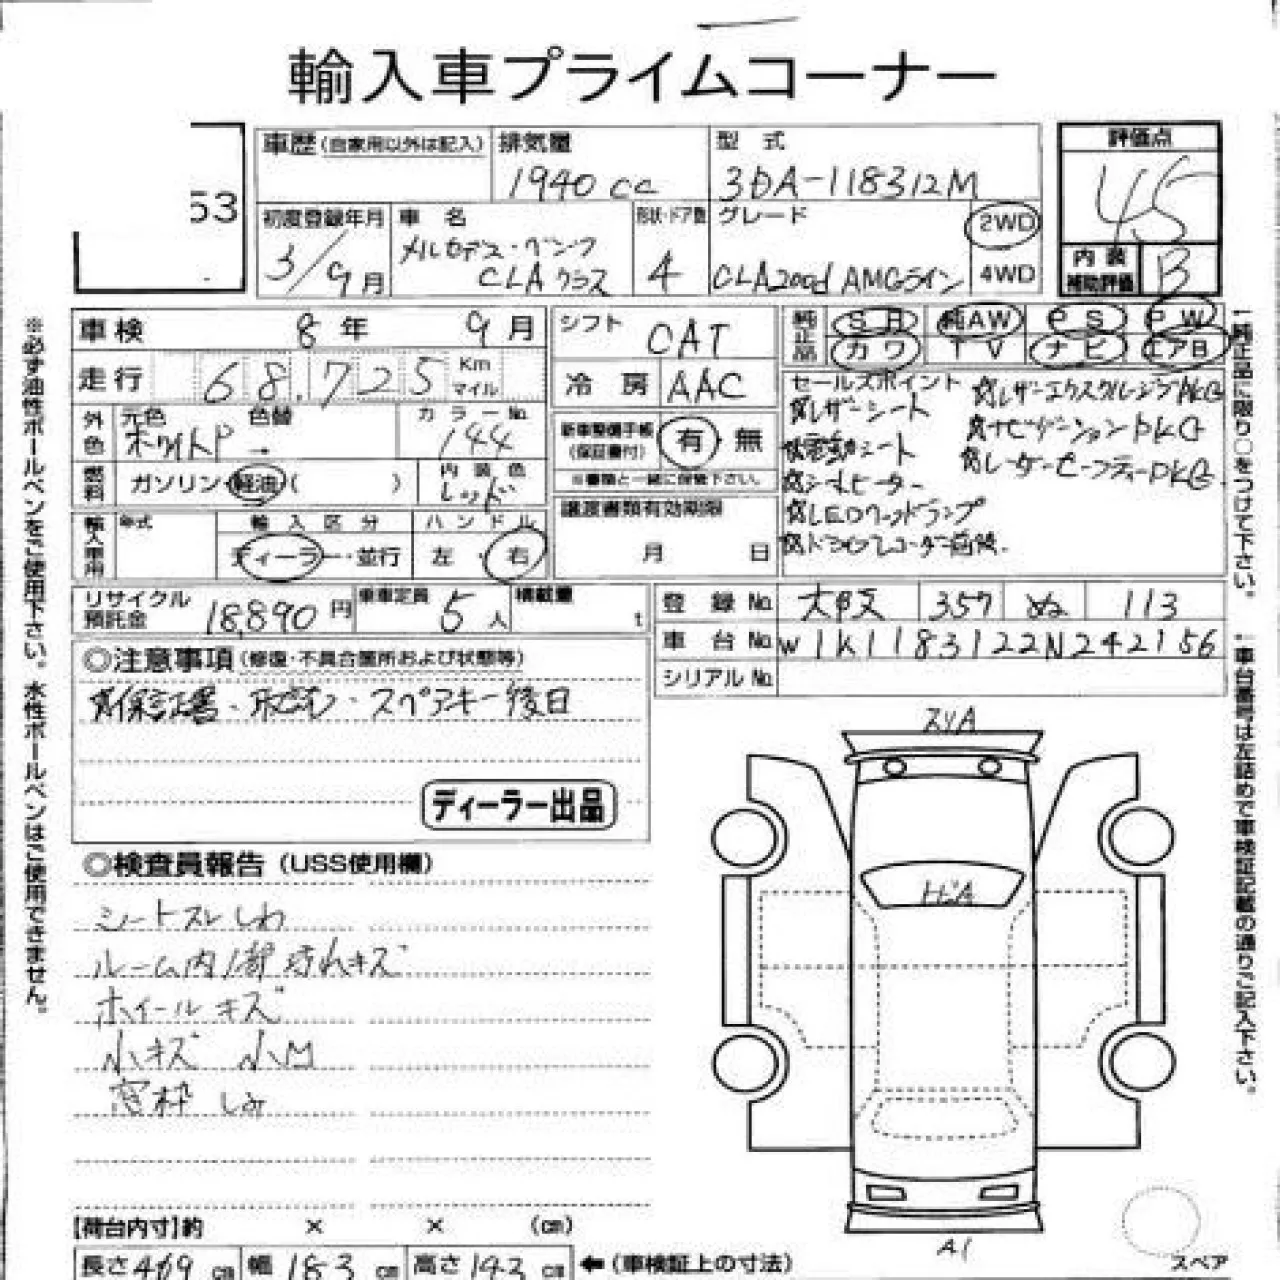 輸入車プライムコーナー
53
車歴(自家用以外は記入)
排気量
1940 cc
型 式
3DA-118312M
評価点
4.5
内装
補助評価
B
初度登録年月
3/9月
車 名
メルセデス・ベンツ
CLAクラス
形状・ドア数
4
グレード
CLA200d AMGライン
2WD
4WD
車検 8年 9月
走行 68,725 Km マイル
外色
元色 色替
ホワイトP →
カラーNo.
144
燃料
ガソリン・軽油( )
内装色
レッド
輸入車用
年式
輸入区分
ディーラー・並行
ハンドル
左・右
シフト
CAT
冷房 AAC
新車整備手帳
(保証書付)
有・無
※書類と一緒に保管下さい。
譲渡書類有効期限
月 日
純正品
S月 純AW PS PW
カワ TV ナビ エアB
セールスポイント
レザーエクスクルーシブPKG
レザーシート
ナビゲーションPKG
電動シート
レーダーセーフティーPKG
シートヒーター
LEDヘッドランプ
ドライブレコーダー前後.
リサイクル預託金 18,890円
乗車定員 5人
積載量 t
登録No. 大阪 357 ぬ 113
車台No. W1K1183122N242156
シリアルNo.
◎注意事項(修復・不具合箇所および状態等)
保証書・取説・スペアキー後日
ディーラー出品
◎検査員報告(USS使用欄)
シートスレしわ
ルーム内1部汚れキズ
ホイールキズ
小キズ 小M
窓枠 しみ
スリA
トビA
A1
スペア
[荷台内寸]約 × × (cm)
長さ469cm 幅183cm 高さ142cm ←(車検証上の寸法)
※必ず油性ボールペンをご使用下さい。水性ボールペンはご使用できません。
純正品に限り○をつけて下さい。
車台番号は左詰めで車検証記載の通りご記入下さい。